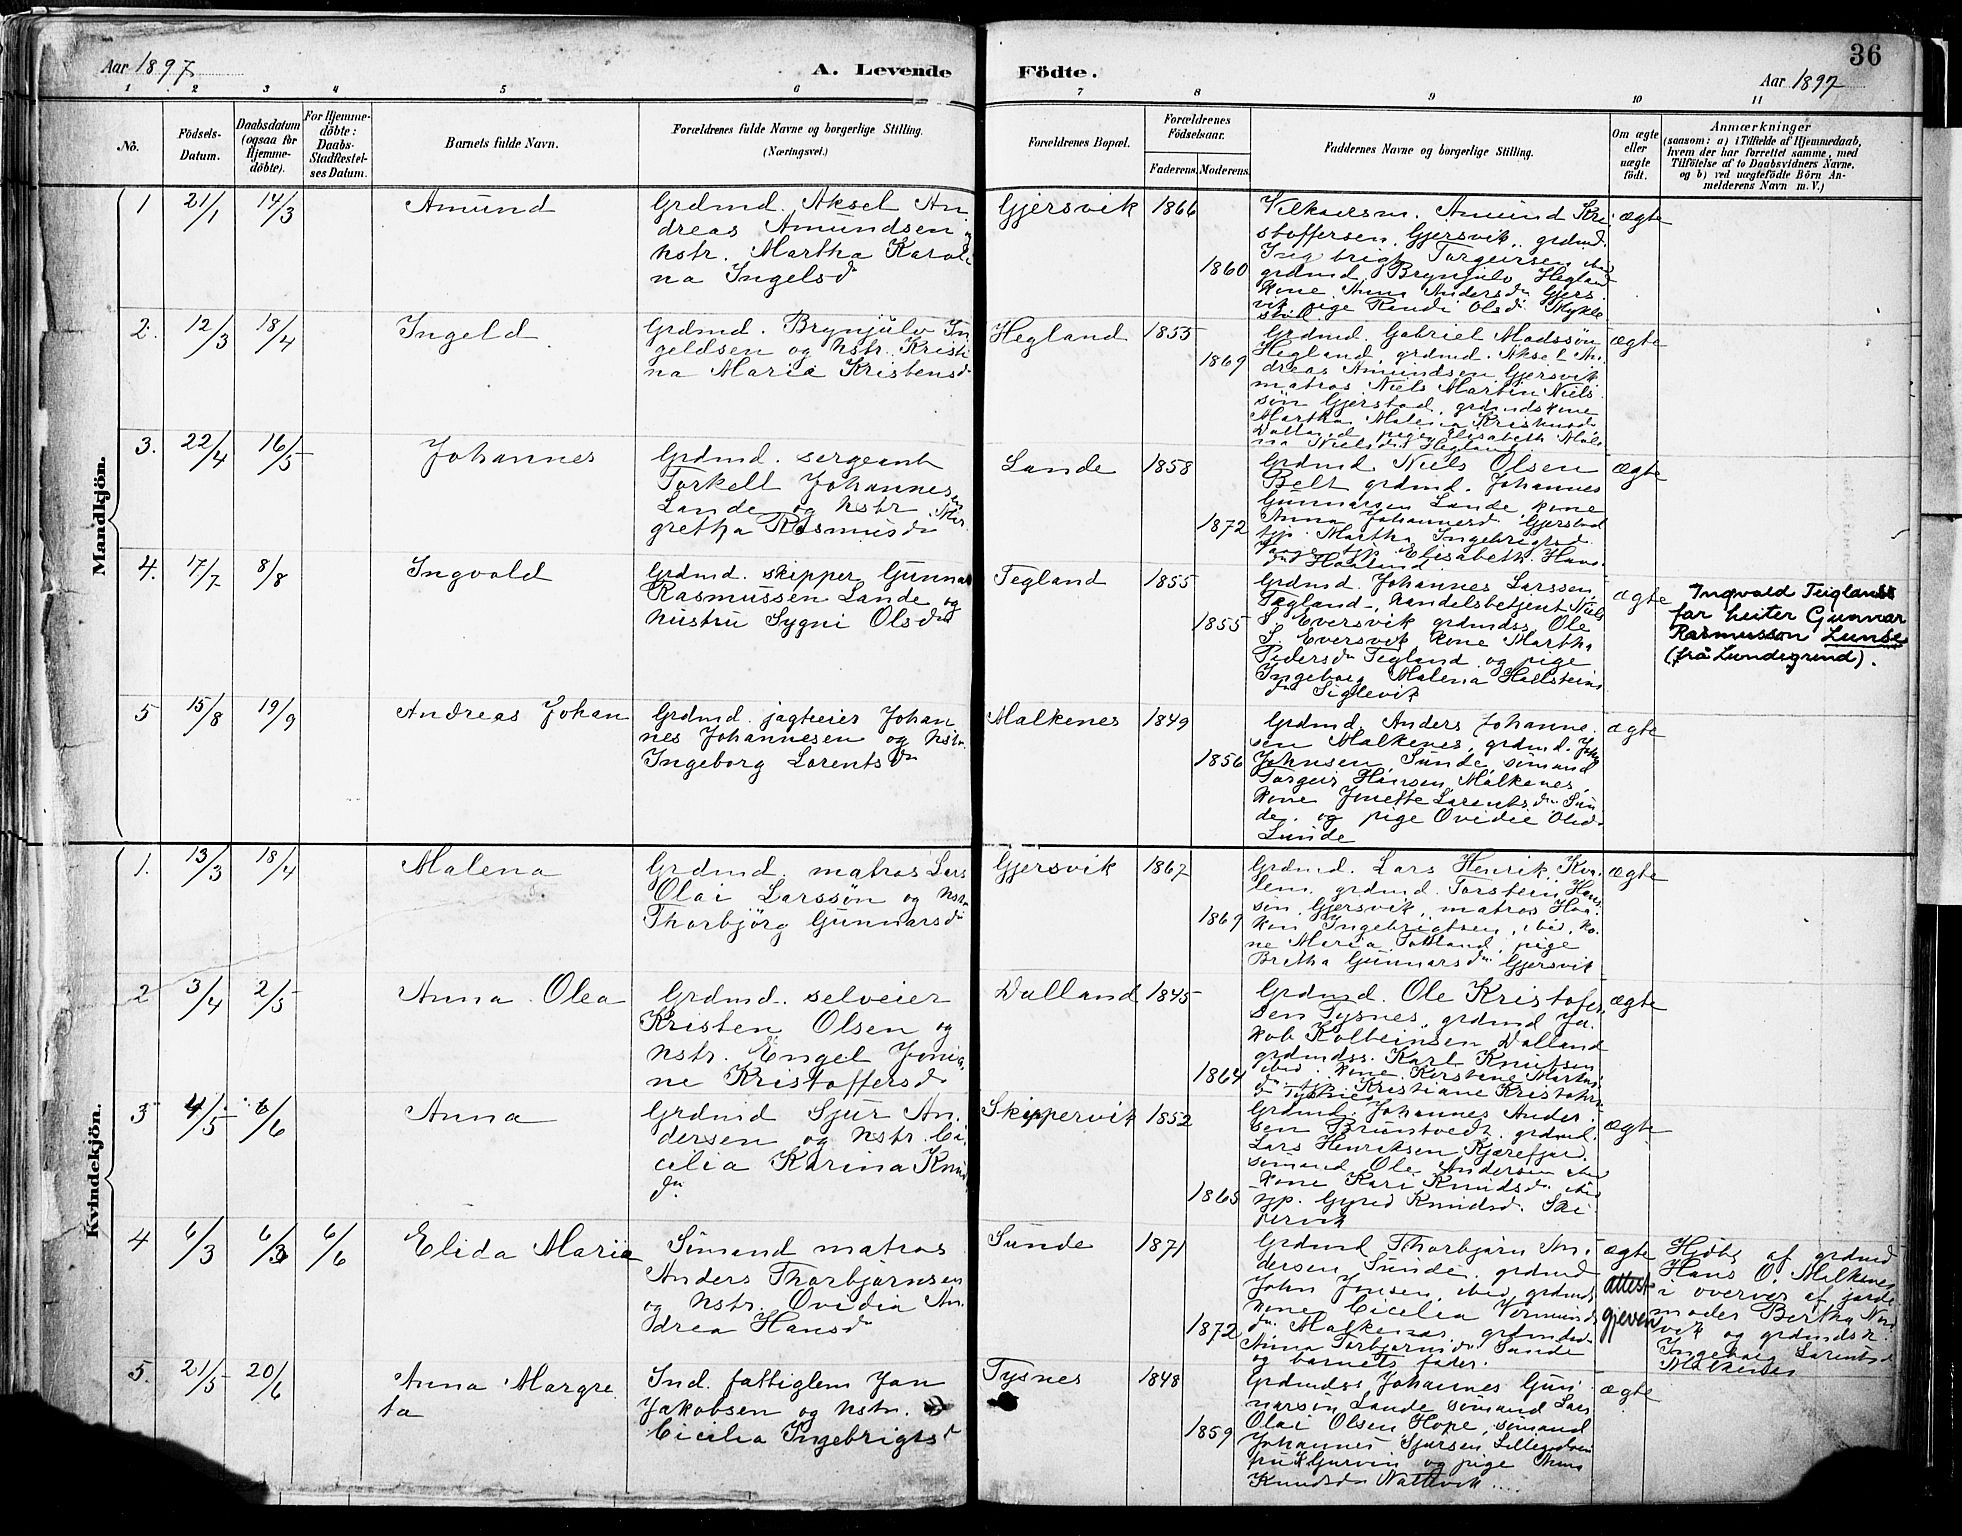 36
Aar 1897
A. Levende Födte.
Aar 1897
1 2 3 4 5 6 7 8 9 10 11
No.
Födsels-
Datum.
Daabsdatum
(ogsaa for
Hjemme-
döbte).
For Hjemme-
döbte:
Daabs-
Stadfæstel-
ses Datum.
Barnets fulde Navn.
Forældrenes fulde Navne og borgerlige Stilling.
(Næringsvei.)
Forældrenes Bopæl.
Forældrenes
Födselsaar.
Faderens. Moderens.
Faddernes Navne og borgerlige Stilling.
Om ægte
eller
uægte
födt.
Anmærkninger
(saasom: a) i Tilfælde af Hjemmedaab,
hvem der har forrettet samme, med
Tilföielse af to Daabsvidners Navne,
og b) ved uægtefödte Börn An-
melderens Navn m. V.)
Mandkjön.
1 21/1 14/3 Amund
Grdmd. Aksel An
dreas Amundsen
hstr. Martha Karol
na Ingelsd
Gjersvik 1866
1860
Amund Kri
stoffersen, Gjersvik, grdmd.
Ingbrigt Torgeirsen
grdmd Brynjulv Hegland
kone Anna Andersdn Gjers
vik pige Olsd Mykle
ægte
2. 12/3 18/4 Ingeld
Grdmd. Brynjulv In
geldsen og hstr. Kristi
na Maria Kristensd
Hegland 1853
1869
Grdmd. Gabriel Madssøn
Hegland, grdmd. Aksel An
dreas Amundsen Gjersvik
matros Niels Martin Niels
søn Gjerstad, grdmdskone
Martha Malena
Dalland pige Elisabeth
na Hegland
ægte
3. 22/4 16/5 Johannes
Grdmd. sergeant
Torkell Johannes
Lande og hstr. Mar
gretha Rasmusdn
Lande 1858
1872
Grdmd. Niels Olsen
Belt grdmd. Johannes
Gunnarsen Lande, kone
Anna Johannesd Gjerstad
Martha Ingebrigtsd
Elisabeth Hans
dn
ægte
4. 17/7 8/8 Ingvald
Grdmd. skipper Gunnar
Rasmussen Lande og
hustru Sygni Olsdn
Tegland 1855
1855
Grdmd. Johannes Larssen
Tegland, handelsbetjent Niels
S Eversvik grdmdss Ole
S. Eversvik kone Martha
Pedersdn Tegland og pige
Ingeborg Malena Hallsteins
dn Siglevik
ægte
Ingvald Teiglands
far heiter Gunnar
Rasmusson Lunde
(frå Lundegrend).
5 15/8 19/9 Andreas Johan
Grdmd. jagteeier Johan
nes Johannesen og hstr.
Ingeborg Lorentsdn
Malkenes 1849
1856
Grdmd. Anders Johanne
sen Malkenes, grdmd. John
Johnsen, Sunde sømand
Torgeir Hansen Malkenes,
kone Jonette Larentsdn Sun
de. og pige Ovidie Olsd
Lunde
ægte
Kvindekjön.
1. 13/3 18/4 Malena
Grdmd. matros Lars
Olai Larssøn og hstr
Thorbjörg Gunnarsdn
Gjersvik 1867
1869
Grdmd. Lars Henrik, Kva
lem. grdmd. Torstein Hans
søn, Gjersvik, matros Haa
kon Ingebrigtsen, ibid, ko
ne Maria pige
Bretha Gunnarsdn Gjersvik
ægte
2 3/4 2/5 Anna Olea
Grdmd. selveier
Kristen Olsen og
hstr. Engel Joni
ne Kristoffersd
Dalland 1845
1864
Grdmd. Ole Kristoffer
sen Tysnes, grdmd Ja
kob Kolbeinsen Dalland
grdmdss. Karl Knutsen
ibid. kone Kirstene
Kristiane
Tysnes
ægte
3 4/5 6/6 Anna
Grdmd Sjur An
dersen og hstr. Ci
cilia Karina Knuds
dn.
Skippervik 1852
1865
Grdmd. Johannes Ander
sen Brunstvedt, grdmd.
Lars Henriksen Kjærefjor
sømand Ole Andersen
kone Kari Knudsdn ibid
Gyrid Knudsd. Ski
pervik
ægte
4 6/3 6/3 6/6 Elida Maria
Sömand matros
Anders Thorbjørnsen
og hstr. Ovidia An
drea Hansdn
Sunde 1871
1872
Grdmd Thorbjørn An
dersen Sunde, grdmd
John Jonsen, ibid, grdmds
kone Cicelia
dn. Malkenes, grdmdsd.
Anna Torbjørnsdn Sunde
og barnets fader.
ægte
attest
gjeven
Hjdbt. af grdmd
Hans O. Malkenes
i overvær af jorde
moder Bertha Næs
vik og grdmdsk.
Ingeborg Larentsd
Malkenes
5. 21/5 20/6 Anna Margre
ta
Ind. fattiglem Jan
Jakobsen og hstr.
Cicilia Ingebrigtsd
Tysnes 1848
1859
Grdmdss Johannes Gun
narsen Lande sømand Lars
Olai Olsen Hope, sømand
Johannes Sjursen
og pige Anna
Knudsdn Nattevik
ægte